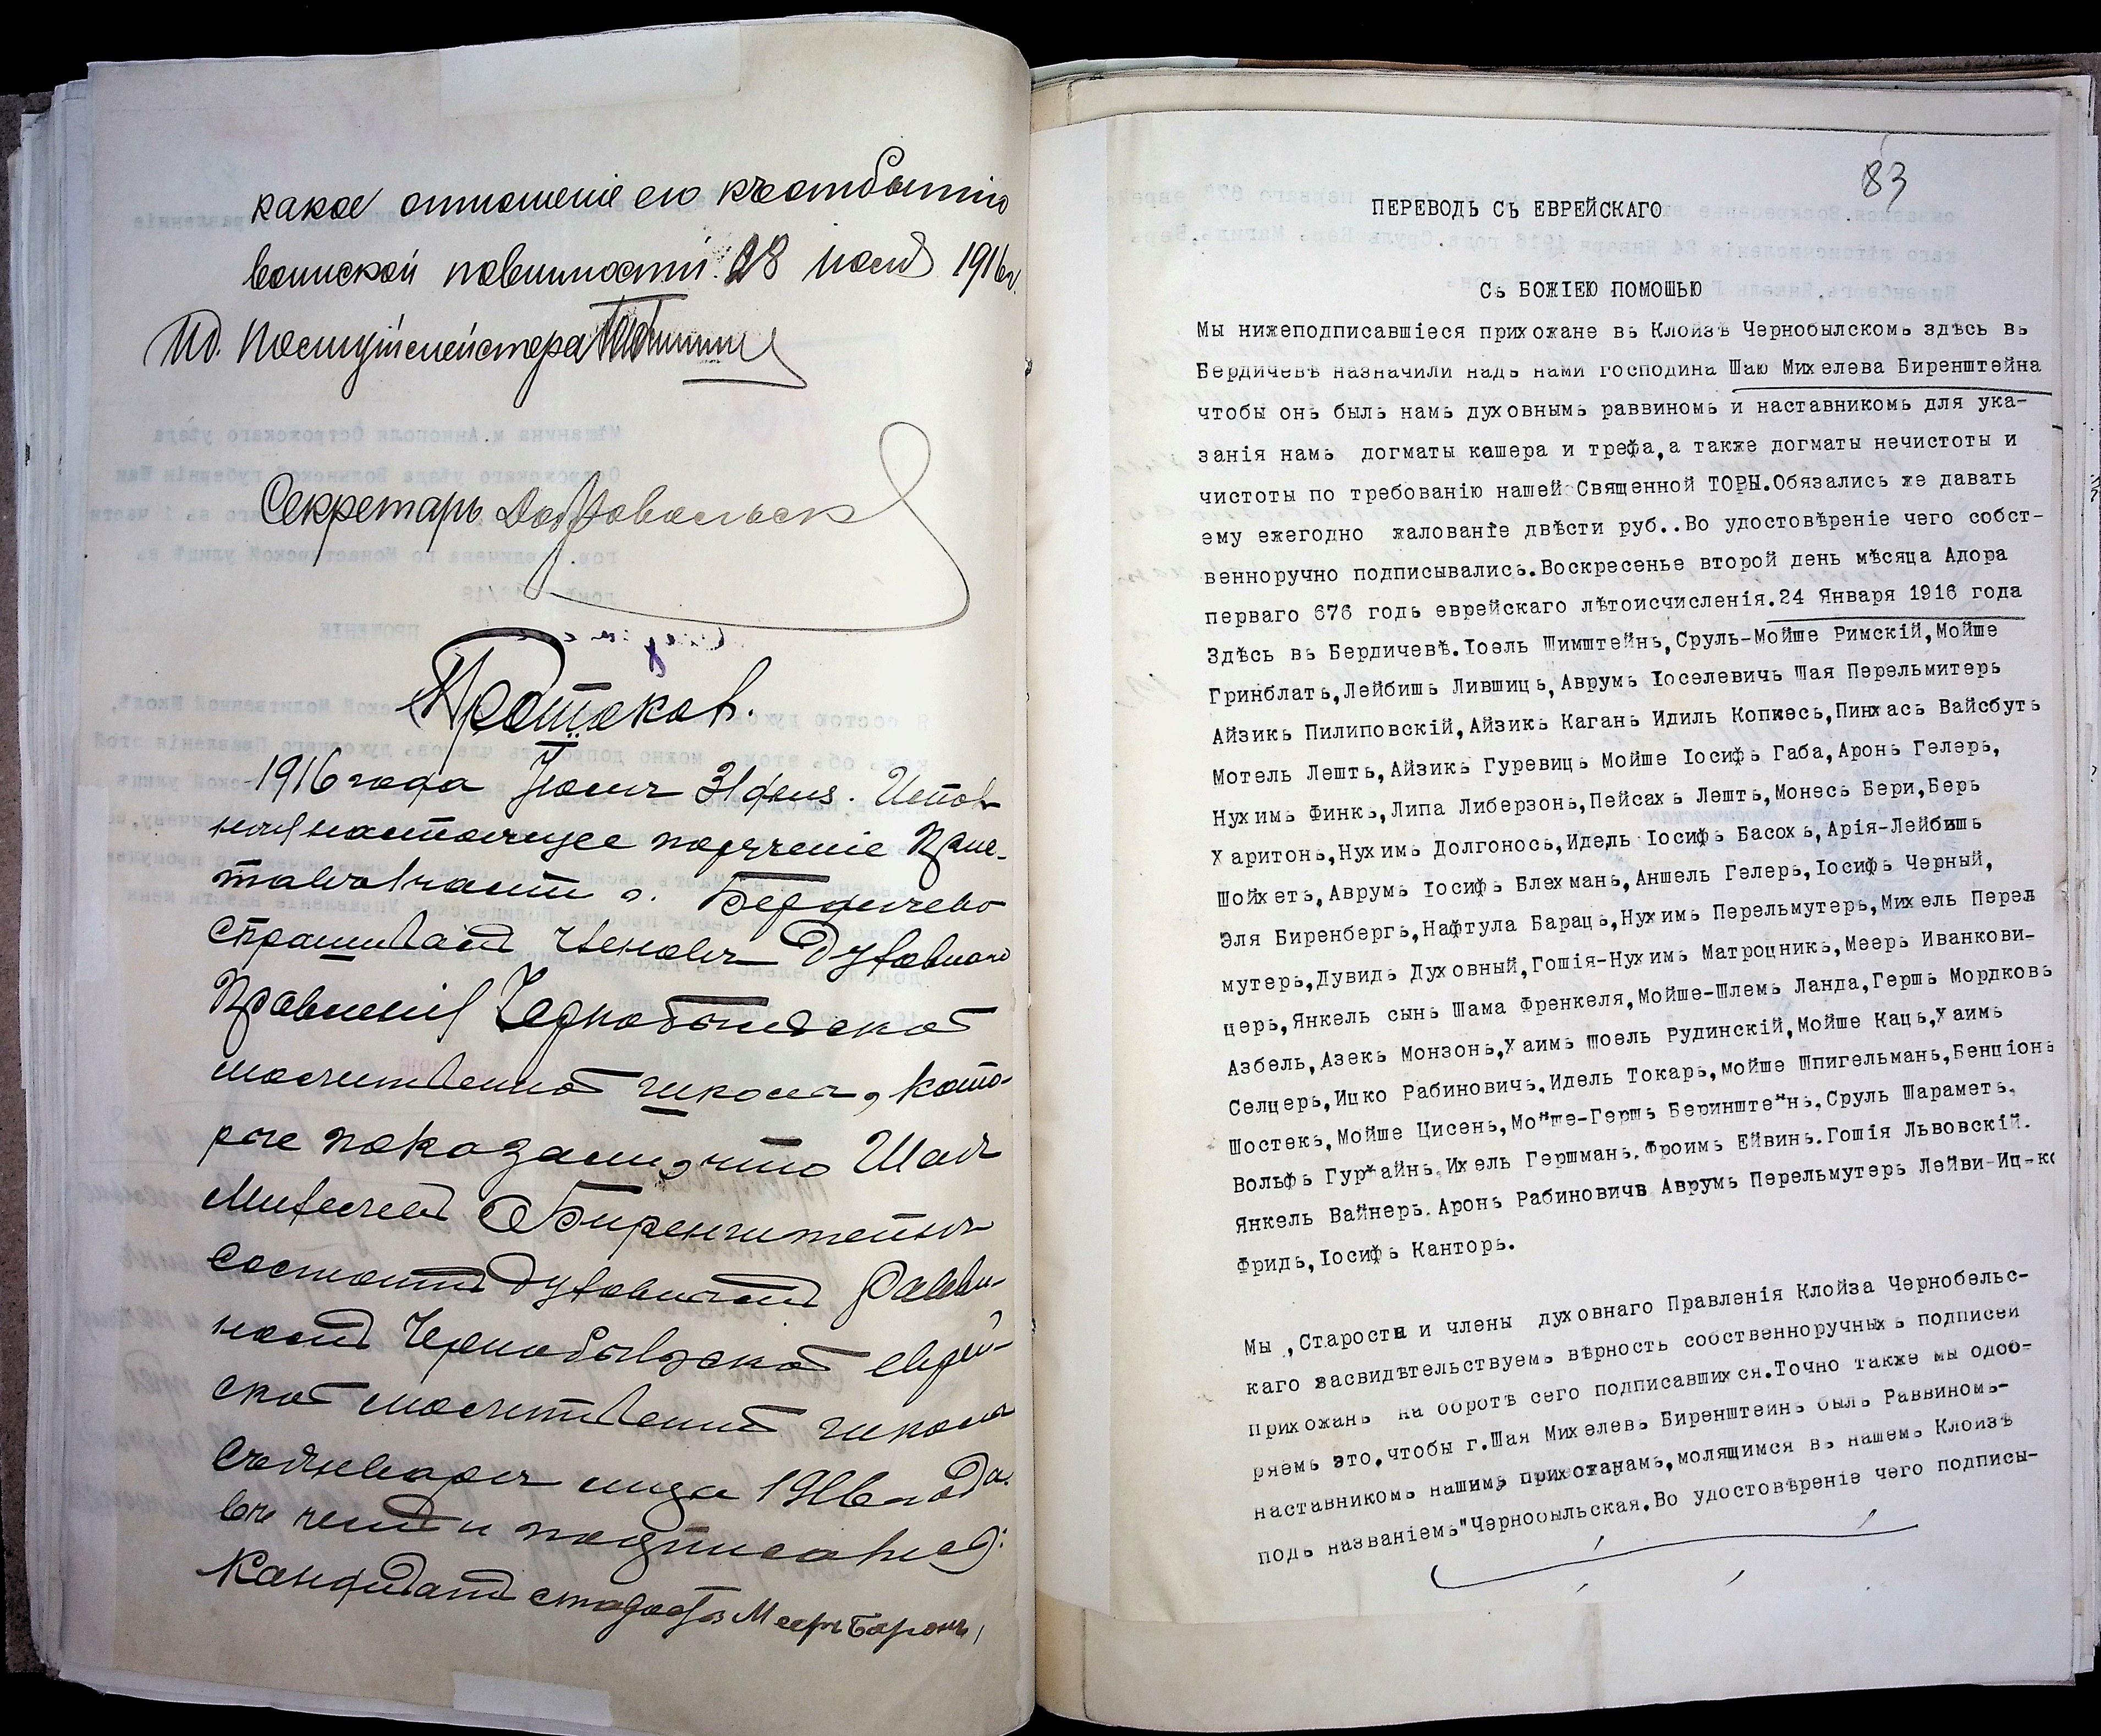 какое отношеніе его къ отбытію
воинской повинности. 28 1916 г.
Ид. Полиціймейстера
Секретарь
Протоколъ.
1916 года Іюля 31 дня.
настоящее порученіе
г. Бердичева
спрашивалъ членовъ Духовнаго
Правленія Чернобыльской
молитвенной школы, кото-
рые показали, что Шая
Михелевъ Биренштейнъ
состоитъ духовнымъ равви-
номъ Чернобыльской еврей-
ской молитвенной школы
съ Января мца 1916 года.
въ чемъ и подписались:
Кандидатъ старосты Мееръ Баронъ
83
ПЕРЕВОДЪ СЪ ЕВРЕЙСКАГО
СЪ БОЖІЕЮ ПОМОШЬЮ
Мы нижеподписавшіеся прихожане въ Клойзѣ Чернобылскомъ здѣсь въ
Бердичевѣ назначили надъ нами господина Шаю Михелева Биренштейна
чтобы онъ былъ намъ духовнымъ раввиномъ и наставникомъ для ука-
занія намъ догматы кашера и трефа,а также догматы нечистоты и
чистоты по требованію нашей Священной ТОРЫ.Обязались же давать
ему ежегодно жалованіе двѣсти руб..Во удостовѣреніе чего собст-
венноручно подписывались.Воскресенье второй день мѣсяца Адора
перваго 676 годъ еврейскаго лѣтоисчисленія.24 Января 1916 года
Здѣсь въ Бердичевѣ.Іоель Шимштейнъ,Сруль-Мойше Римскій,Мойше
Гринблатъ,Лейбишъ Лившицъ,Аврумъ Іоселевичъ Шая Перельмитеръ
Айзикъ Пилиповскій,Айзикъ Каганъ Идиль Копкесъ,Пинхасъ Вайсбутъ
Мотель Лештъ,Айзикъ Гуревицъ Мойше Іосифъ Габа,Аронъ Гелеръ,
Нухимъ Финкъ,Липа Либерзонъ,Пейсахъ Лештъ,Монесъ Бери,Беръ
Харитонъ,Нухимъ Долгоносъ,Идель Іосифъ Басохъ,Арія-Лейбишъ
Шойхетъ,Аврумъ Іосифъ Блехманъ,Аншель Гелеръ,Іосифъ Черный,
Эля Биренбергъ,Нафтула Барацъ,Нухимъ Перельмутеръ,Михель Перел
мутеръ,Дувидъ Духовный,Гошія-Нухимъ Матроцникъ,Мееръ Иванкови-
церъ,Янкель сынъ Шама Френкеля,Мойше-Шлемъ Ланда,Гершъ Мордковъ
Азбель,Азекъ Монзонъ,Хаимъ Шоель Рудинскій,Мойше Кацъ,Хаимъ
Селцеръ,Ицко Рабиновичъ.Идель Токарь,Мойше Шпигельманъ,Бенціонъ
Шостекъ,Мойше Цисенъ,Мойше-Гершъ Беринштейнъ,Сруль Шараметъ.
Вольфъ Гурхайнъ.Ихель Гершманъ.Фроимъ Ейвинъ.Гошія Львовскій.
Янкель Вайнеръ.Аронъ Рабиновичъ Аврумъ Перельмутеръ Лейви-Иц-ко
Фридъ,Іосифъ Канторъ.
Мы ,Старости и члены духовнаго Правленія Клойза Чернобельс-
каго засвидѣтельствуемъ вѣрность собственноручныхъ подписей
прихожанъ на оборотѣ сего подписавшихся.Точно также мы одоб-
ряемъ это,чтобы г.Шая Михелевъ Биренштейнъ былъ Раввиномъ-
наставникомъ нашимъ прихожанамъ,молящимся въ нашемъ Клойзѣ
подъ названіемъ"Чернобыльская.Во удостовѣреніе чего подписы-